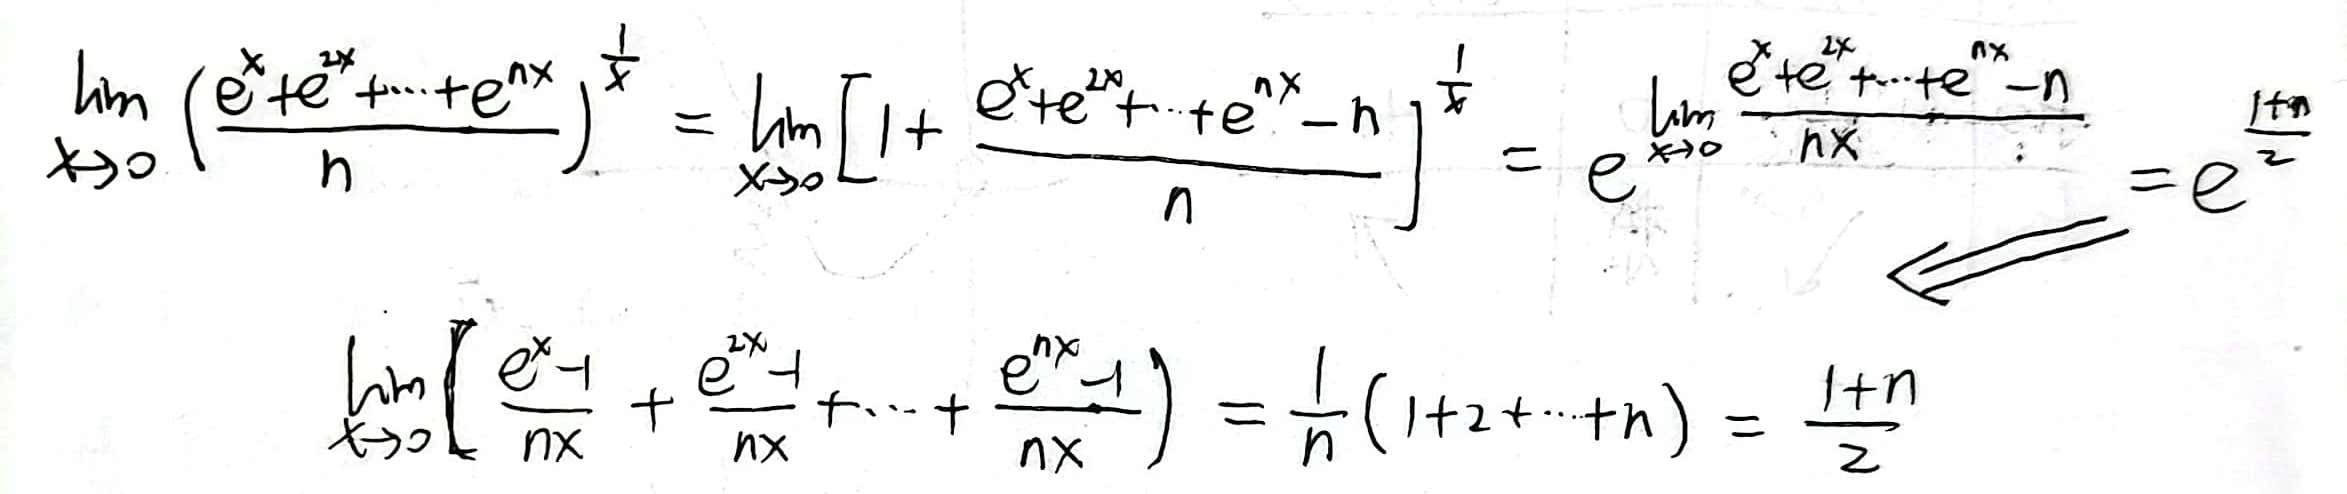 $\lim_{x \to 0} \left( \frac{e^x + e^{2x} + \cdots + e^{nx}}{n} \right)^{\frac{1}{x}} = \lim_{x \to 0} \left[ 1 + \frac{e^x + e^{2x} + \cdots + e^{nx} - n}{n} \right]^{\frac{1}{x}} = e^{\lim_{x \to 0} \frac{e^x + e^{2x} + \cdots + e^{nx} - n}{nx}} = e^{\frac{1+n}{2}}$ $\Leftarrow$
$\lim_{x \to 0} \left[ \frac{e^x - 1}{nx} + \frac{e^{2x} - 1}{nx} + \cdots + \frac{e^{nx} - 1}{nx} \right) = \frac{1}{n} (1 + 2 + \cdots + n) = \frac{1+n}{2}$